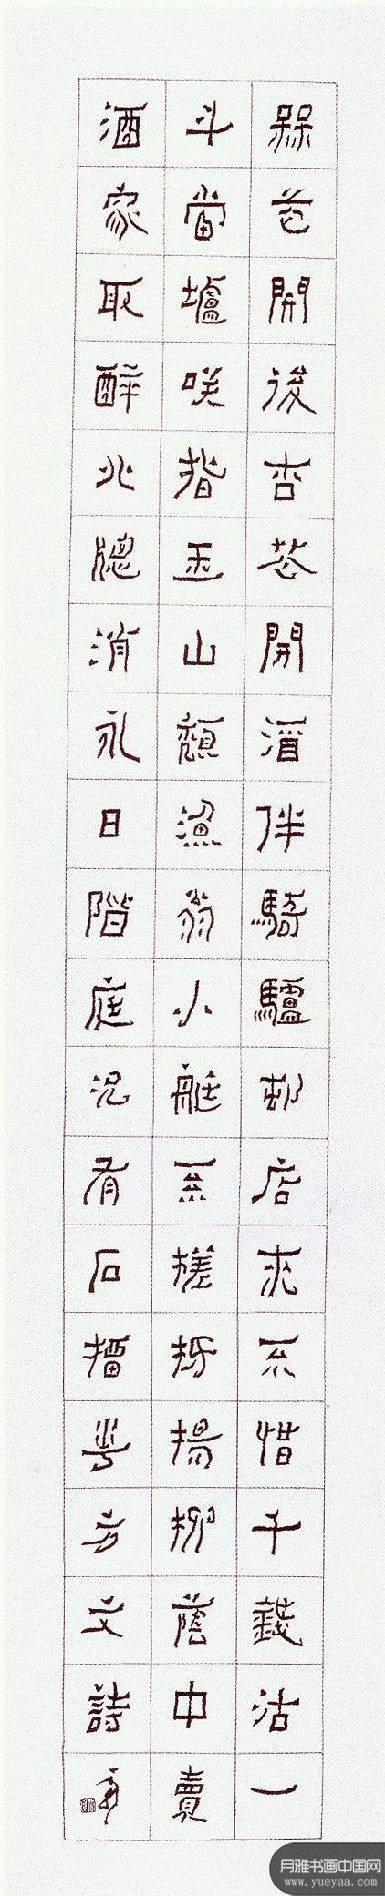 槑花開後杏花開酒伴騎驢邨店來不惜千錢沽一
斗當壚咲指玉山頹漁翁小艇不槎枒楊柳蔭中賣
酒家取醉北牕消永日階庭況有石榴華方文詩
月雅书画中国网
www.yueyaa.com